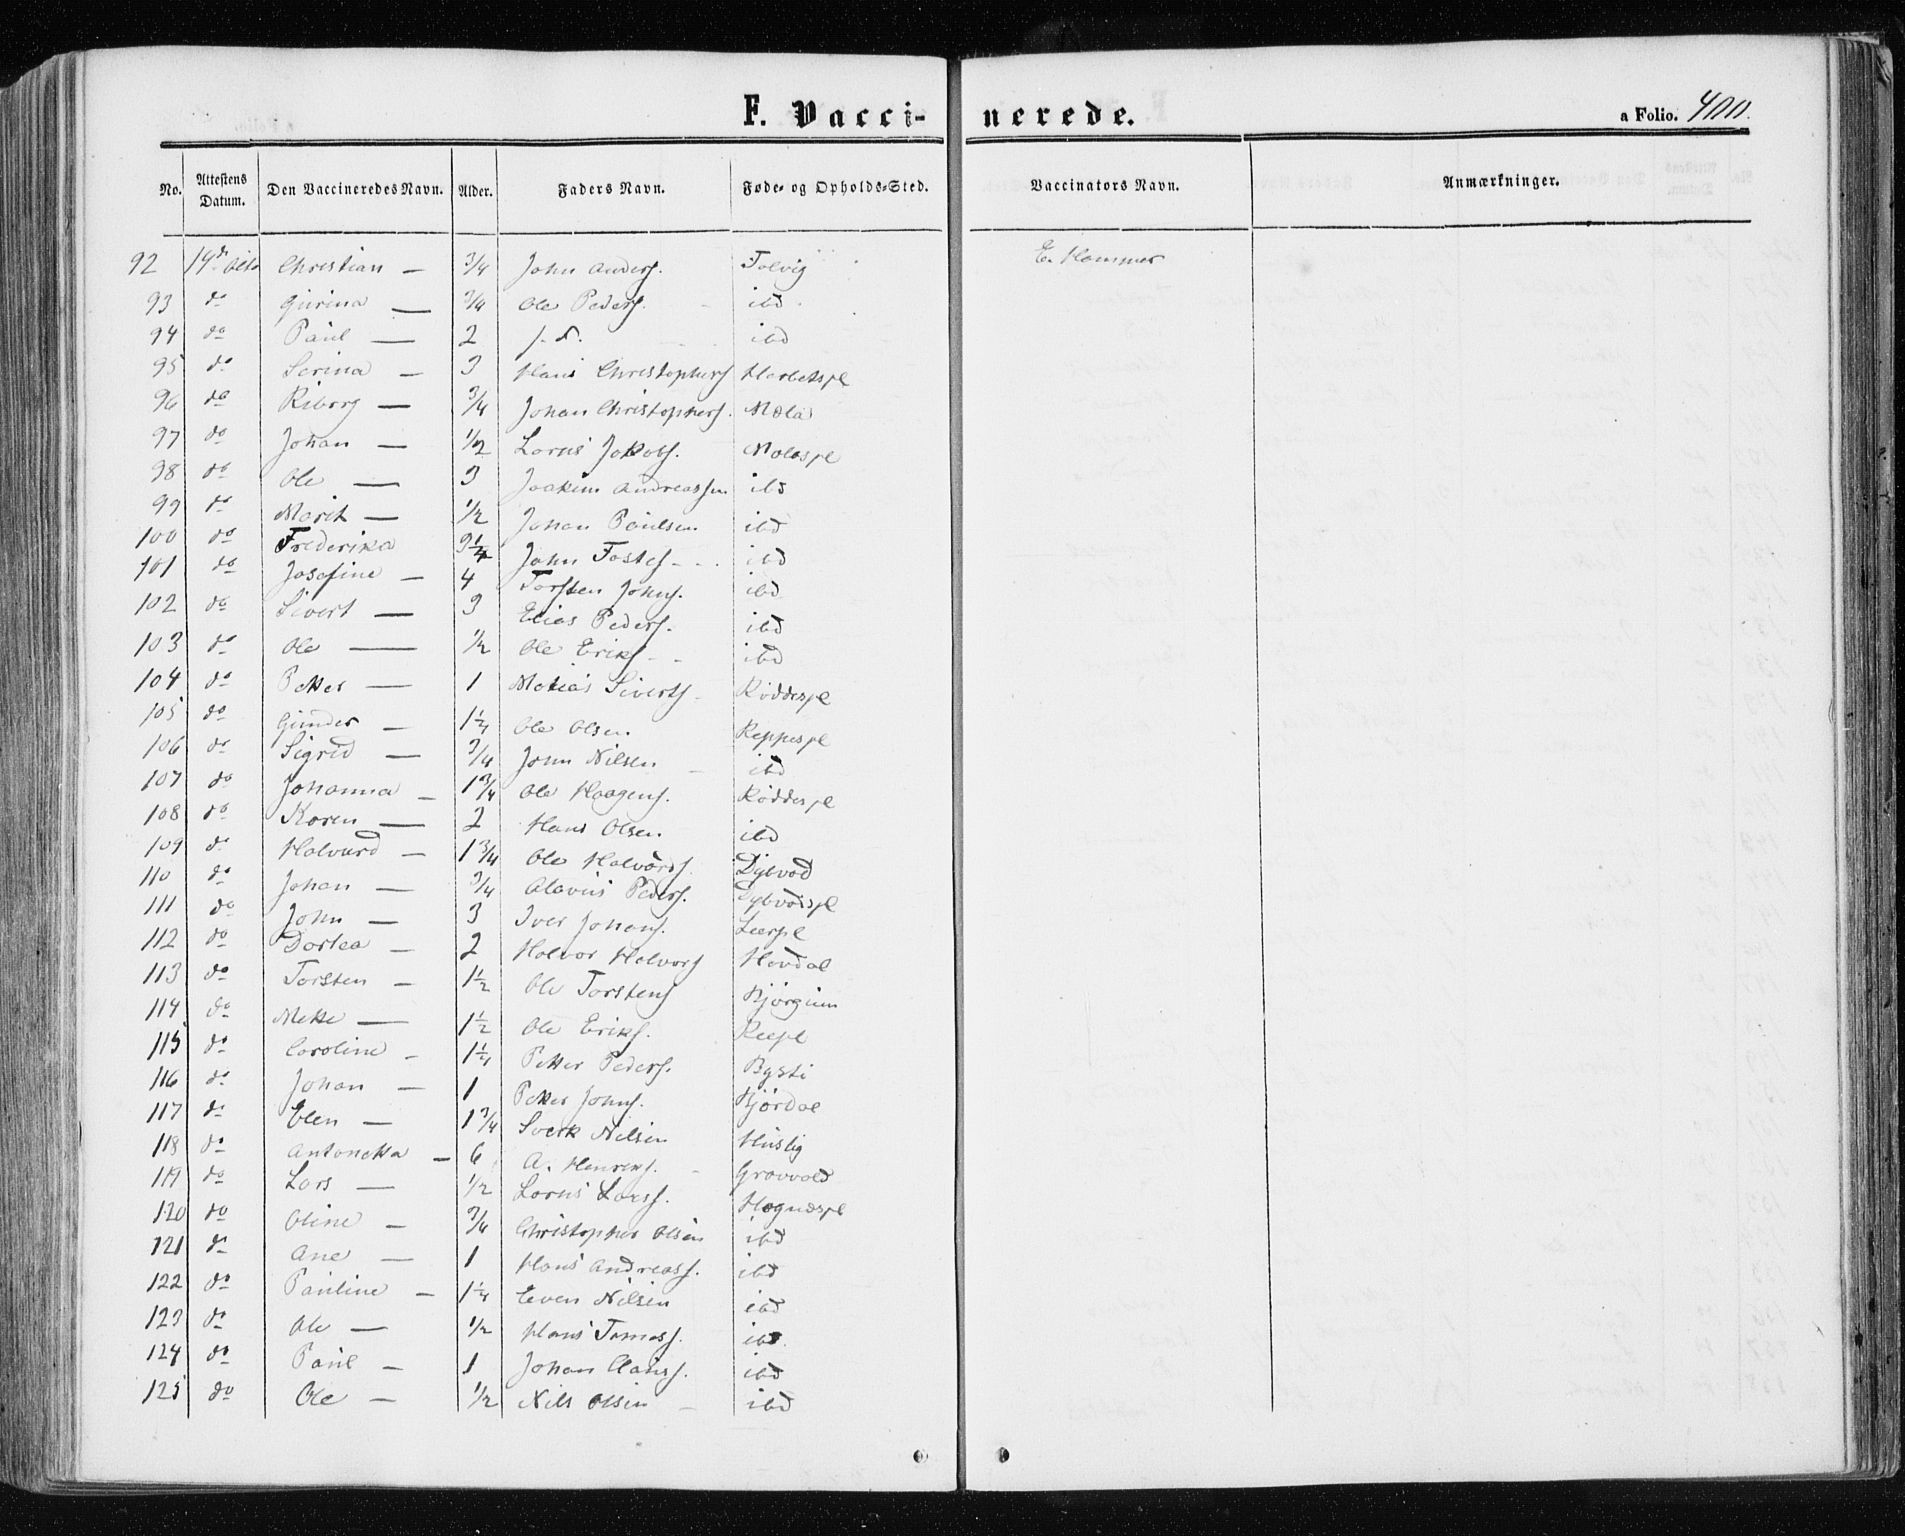 F. Vacci- nerede.
a Folio. 400.
No. Attestens Datum. Den Vaccineredes Navn. Alder. Faders Navn. Føde- og Opholds-Sted. Vaccinators Navn. Anmærkninger.
92 14de Christian — 3/4 John Anders. Tolvig E. Hammer
93 do Gurina — 3/4 Ole Peders. ibd.
94 do Paul — 2 ibd
95 do Serina — 3 Hans Christophers
96 do Riborg — 3/4 Johan Christophers. Mæla
97 do Johan — 1/2 Lorns Jakobs. Mælaspl
98 do Ole — 3 Joakim Andreassen ibd
99 do Marit — 1/2 Johan Paulsen ibd
100 do Frederika 3 1/4 John ibd
101 do Josefine — 4 Torsten Johns. ibd
102 do Sivert — 3 Elias Peders. ibd
103 do Ole — 1/2 Ole Eriks - - ibd
104 do Petter — 1 Matias Siverts - Røddespl
105 do Gunder — 1 1/4 Ole Olsen. Reppespl
106 do Sigrid — 3/4 John Nilsen ibd
107 do Johanna — 1 3/4 Ole Haagens. Røddespl
108 do Karen — 2 Hans Olsen ibd
109 do Halvard — 1 3/4 Ole Halvords. Dybvad
110 do Johan — 3/4 Olavus Peders. Dybvadspl
111 do John — 3 Iver Johans. Leerpl
112 do Dortea — 2 Halvor Halvors Hovdal
113 do Torsten — 1 1/2 Ole Torstens Bjørgum
114 do Mette — 1 1/2 Ole Eriks. Reepl
115 do Caroline — 1 1/4 Petter Peders. Bysti
116 do Johan — 1 Petter Johns. Bjørdal
117 do Elen — 1 3/4 Sverk Nilsen Huslig
118 do Antonetta — 6 A. Henriks. - Gravvold
119 do Lars — 1/2 Lorns Larss. Hognæspl
120 do Oline — 3/4 Christopher Olsen ibd
121 do Ane — 1 Hans Andreass. ibd
122 do Pauline — 1 1/4 Even Nilsen ibd
123 do Ole — 1/2 Hans Tomass. ibd.
124 do Paul — 1 Johan Clauss. ibd
125 do Ole — 1/2 Nils Olsen — ibd